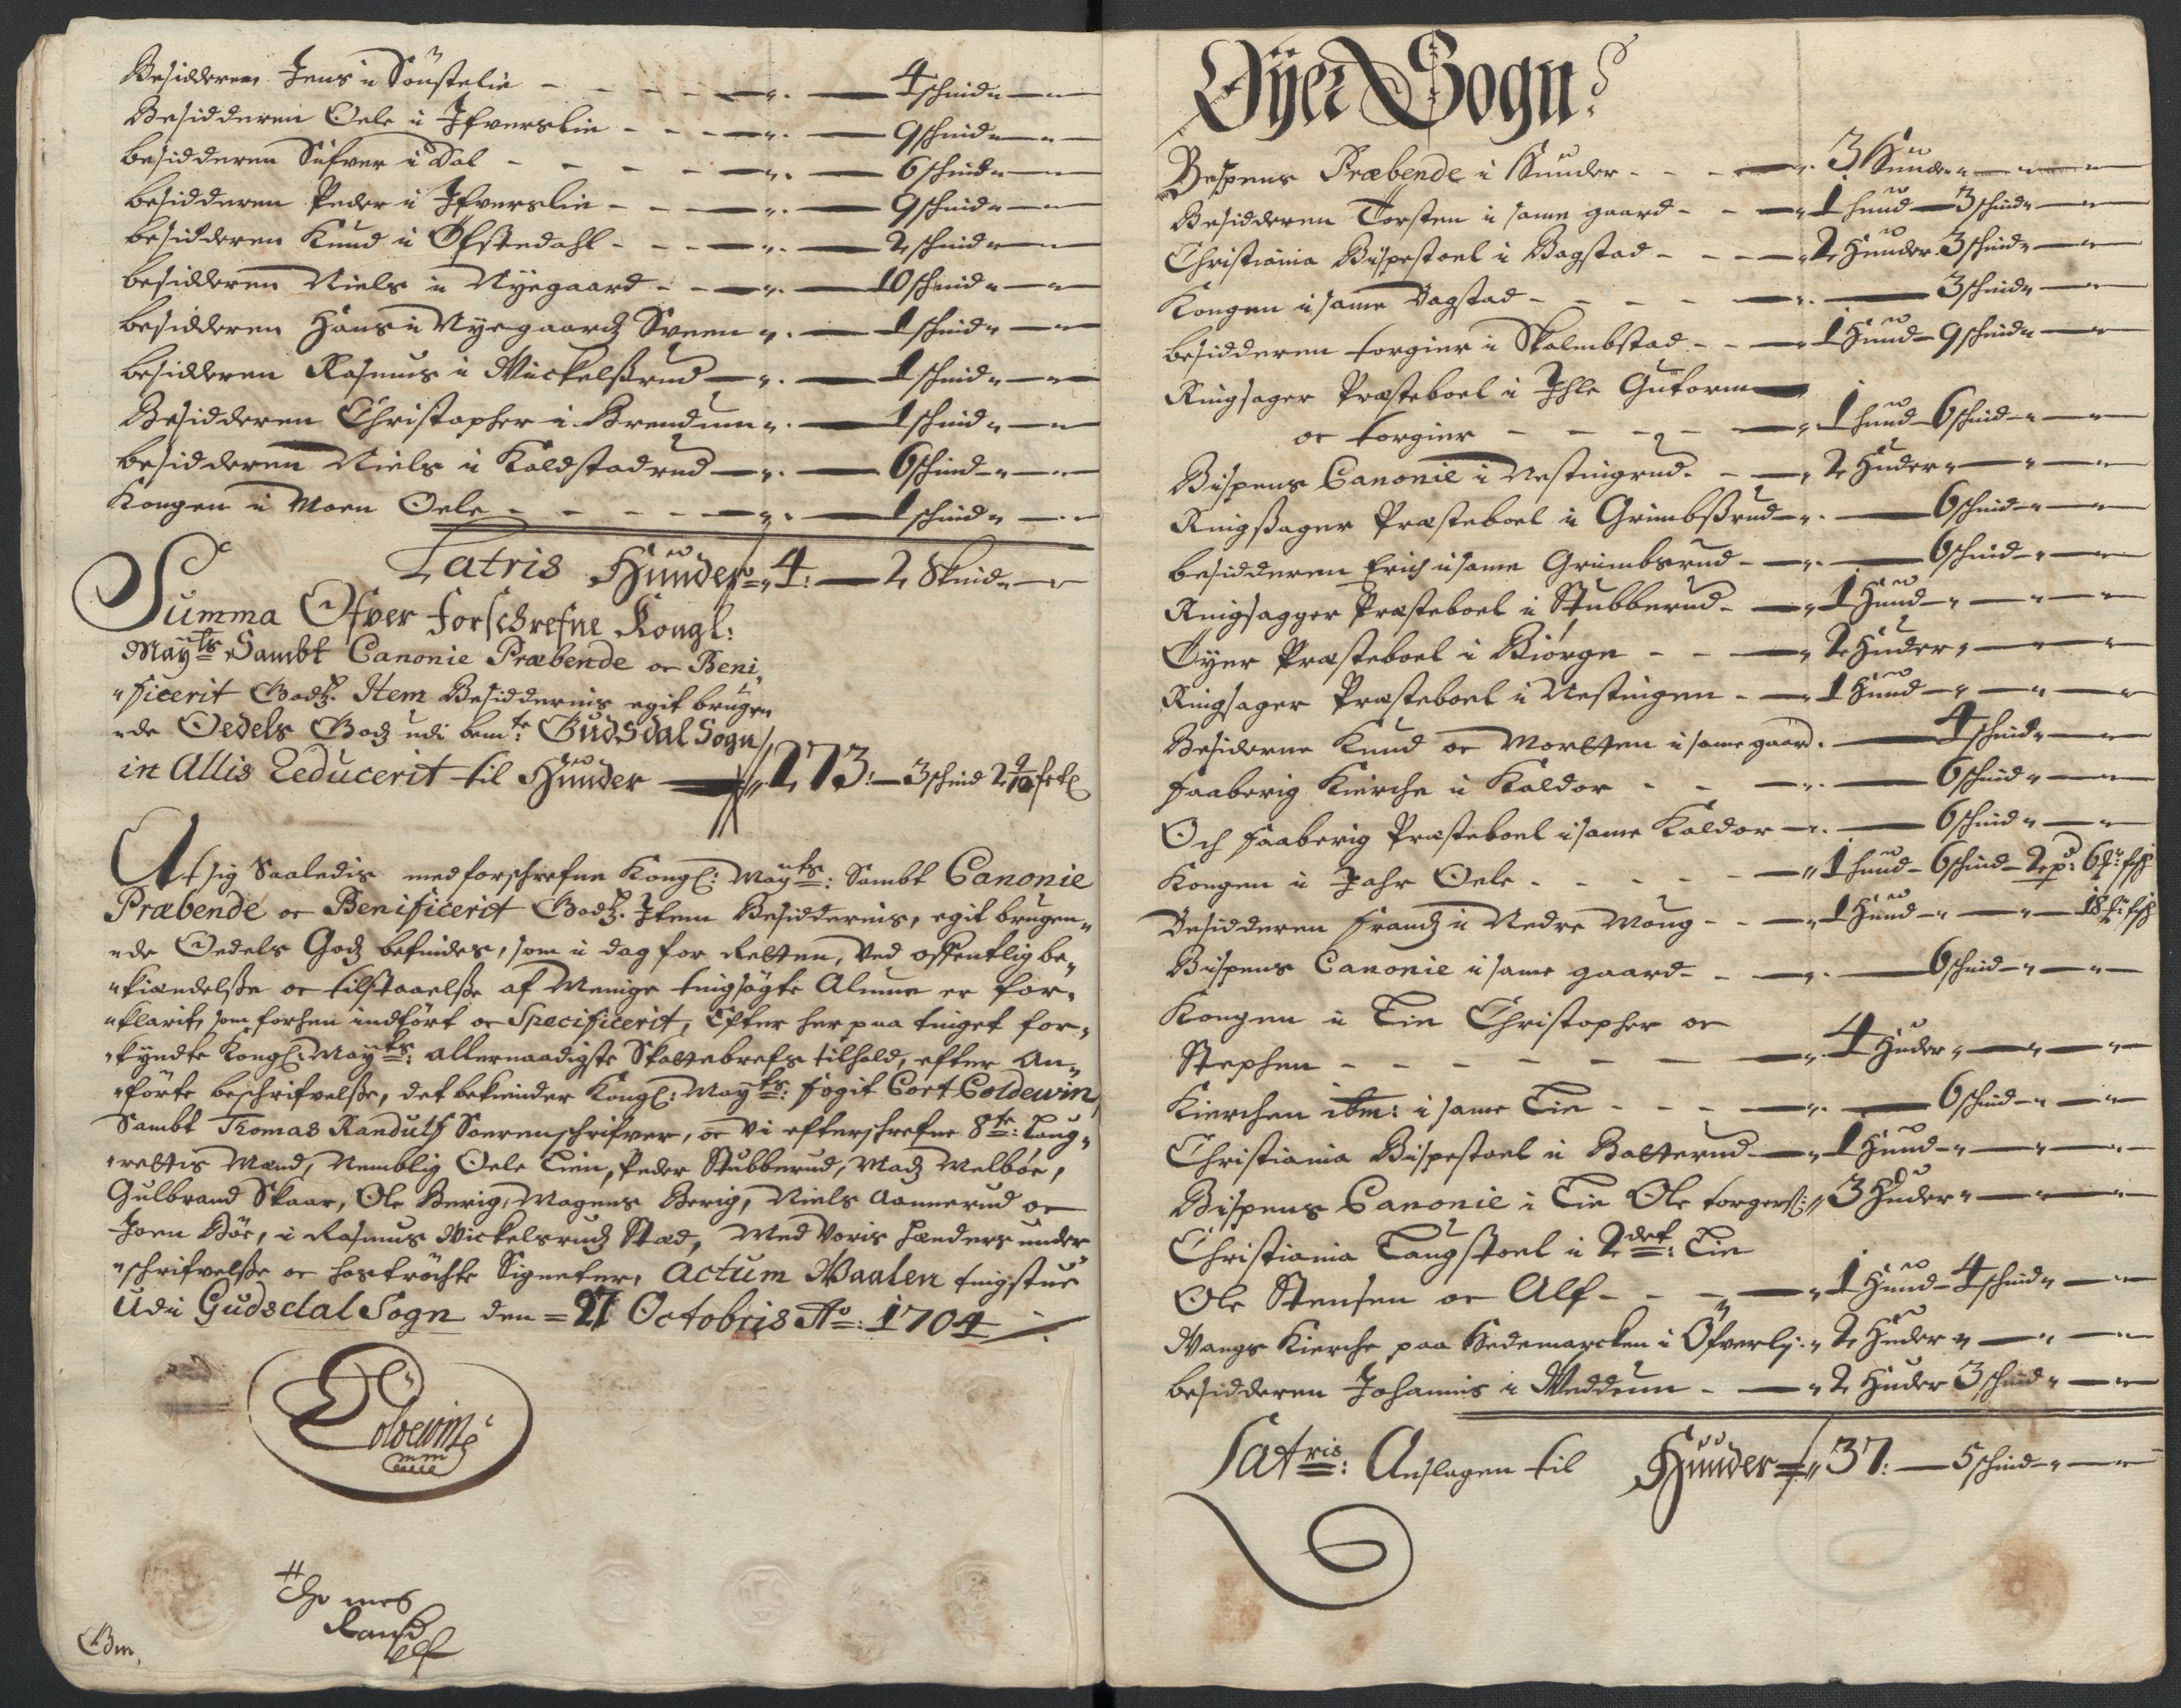 Besidderen Jens i Sönstelie - - - - - „. — 4 schind „ —
Besidderen Oele i Ifverslie - - - „. — 9 schind „ —
besidderen Sifver i Dal - - - - „. — 6 schind „ —
besidderen Peder i Ifverslie - - „. — 9 schind „ —
besidderen Knud i Öfstedahl - - - „. — 2 schind „ —
besidderen Niels i Nÿegaard - - - „. — 10 schind „ —
besidderen Hans i Nÿegaardz Sveen „. — 1 schind „ —
besidderen Rasmus i Wickelßrud — „. — 1 schind „ —
Besidderen Christopher i Brendum „. — 1 schind „ —
besidderen Niels i Kaldstadrud — „. — 6 schind „ —
Kongen i Moen Oele - - - - - „. — 1 schind „ —
Latris Huuder „ 4: — 2 Skind „ —
Summa Ofver forschrefne Kongl:
Mayts Sambt Canonie Præbende oc Beni„
„ficerit Godtz. Item Besiddernis egit brugen
„de Oedels Godz udi bemte: Gudsdal Sogn
in Allis Reducerit til Huuder — „ 273: — 3 schind 2 9/10 sk
At sig Saaledis med forschrefne Kongl: Mayts: Sambt Canonie
Præbende oc Benificerit Godtz. Item Besiddernis, egit brugen„
„de Oedels Godz befindes, som i dag for Retten, Ved offentlig be„
„kiændelße oc tilstaaelße af Menige tingsögte Almue er for„
„klarit, som forhen indfört oc Specificerit, Efter her paa tinget for„
„kÿndte Kongl: Mayts: allernaadigste Skattebrefs tilhold, efter An„
„förte beschrifvelße, det bekiender Kongl: Mayts: fogit Cort Coldewin,
Sambt Thomas Randulf Soerenschrifver, oc Vi efterschrefne 8te: Laug„
„rettis Mænd, Nemblig Oele Lien, Peder Stubberud, Madz Melböe,
Gulbrand Skaar, Ole Berig, Magens Berig, Niels Aannerud oc
Joen Böe, i Rasmus Wickelsrudz Stæd, Med Voris hænders under
„schrifvelße oc hoströchte Signeter, Actum Waalen tingstue
Udi Gudsdal Sogn den = 27 Octobris Ao: 1704
Coldewin
mm
Thomes
Randulf
Öÿer Sogn
Bispens Præbende i Huuder - - - — „ 3 Huuder „ —
Besidderen Torsten i same gaard - - — „ 1 huud — 3 schind „ —
Christiania Bispestoel i Bagstad - - - — „ 2 Huuder 3 schind „ —
Kongen i same Bagstad - - - - — „. — 3 schind „ —
besidderen torgier i Skalmbstad - - — „ 1 Huud — 9 schind „ —
Ringsager Præsteboel i Ihle Gutorm —
oc torgier - - - - — „ 1 huud — 6 schind „ —
Bispens Canonie i Nestingrud - - — „ 2 Huder „ — „ —
Ringsager Præsteboel i Grimbßrud — „. — 6 schind „ —
besidderen Erich i same Grimbsrud - — „. — 6 schind „ —
Ringsagger Præsteboel i Stubberud - — „ 1 Huud — „ — „ —
Öyer Præsteboel i Biörge - - — „ 2 Huder „ — „ —
Ringsager Præsteboel i Nestingen - — „ 1 Huud — „ — „ —
Besiderne Knud oc Mortten i same gaard. — 4 schind „ —
Faaberig Kierche i Kaldor - - — „. — 6 schind „ —
Och Faaberig Præsteboel i same Kaldor — „. — 6 schind „ —
Kongen i Jahr Oele - - - - - — „ 1 huud — 6 schind — 2 pd: 6 fisch
Besidderen Frandz i Nedre Moug - - — „ 1 Huud — „ — „ — 18 fisch
Bispens Canonie i same gaard - - — „. — 6 schind „ —
Kongen i Lie Christopher oc
Stephen - - - - - - — „ 4 Huder „ — „ —
Kierchen ibm: i same Lie - - - — „. — 6 schind — „ —
Christiania Bispestoel i Batterud — „ 1 Huud — „ — „ —
Bispens Canonie i Lie Ole torgers: „ 3 Huder „ — „ —
Christiania Laugstoel i 2det: Lie
Ole Stensen oc Alf - - - — „ 1 Huud — 4 schind „ —
Wangs Kierche paa Hedemarcken i Öfverlj: „ 2 Huder „ — „ —
besidderen Johannis i Weddum - — „ 2 Huder 3 schind „ —
Latris: Anslagen til Huuder = „ 37: — 5 schind „ —